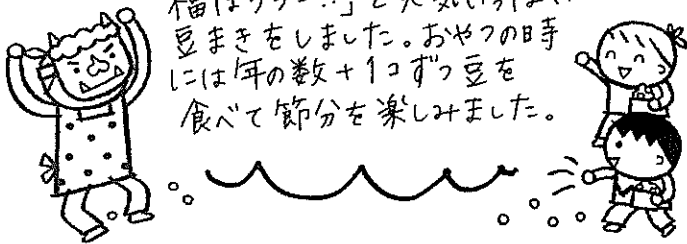 福はうち〜!!」と元気いっぱい
豆まきをしました。おやつの時
には年の数+1コずつ豆を
食べて節分を楽しみました。